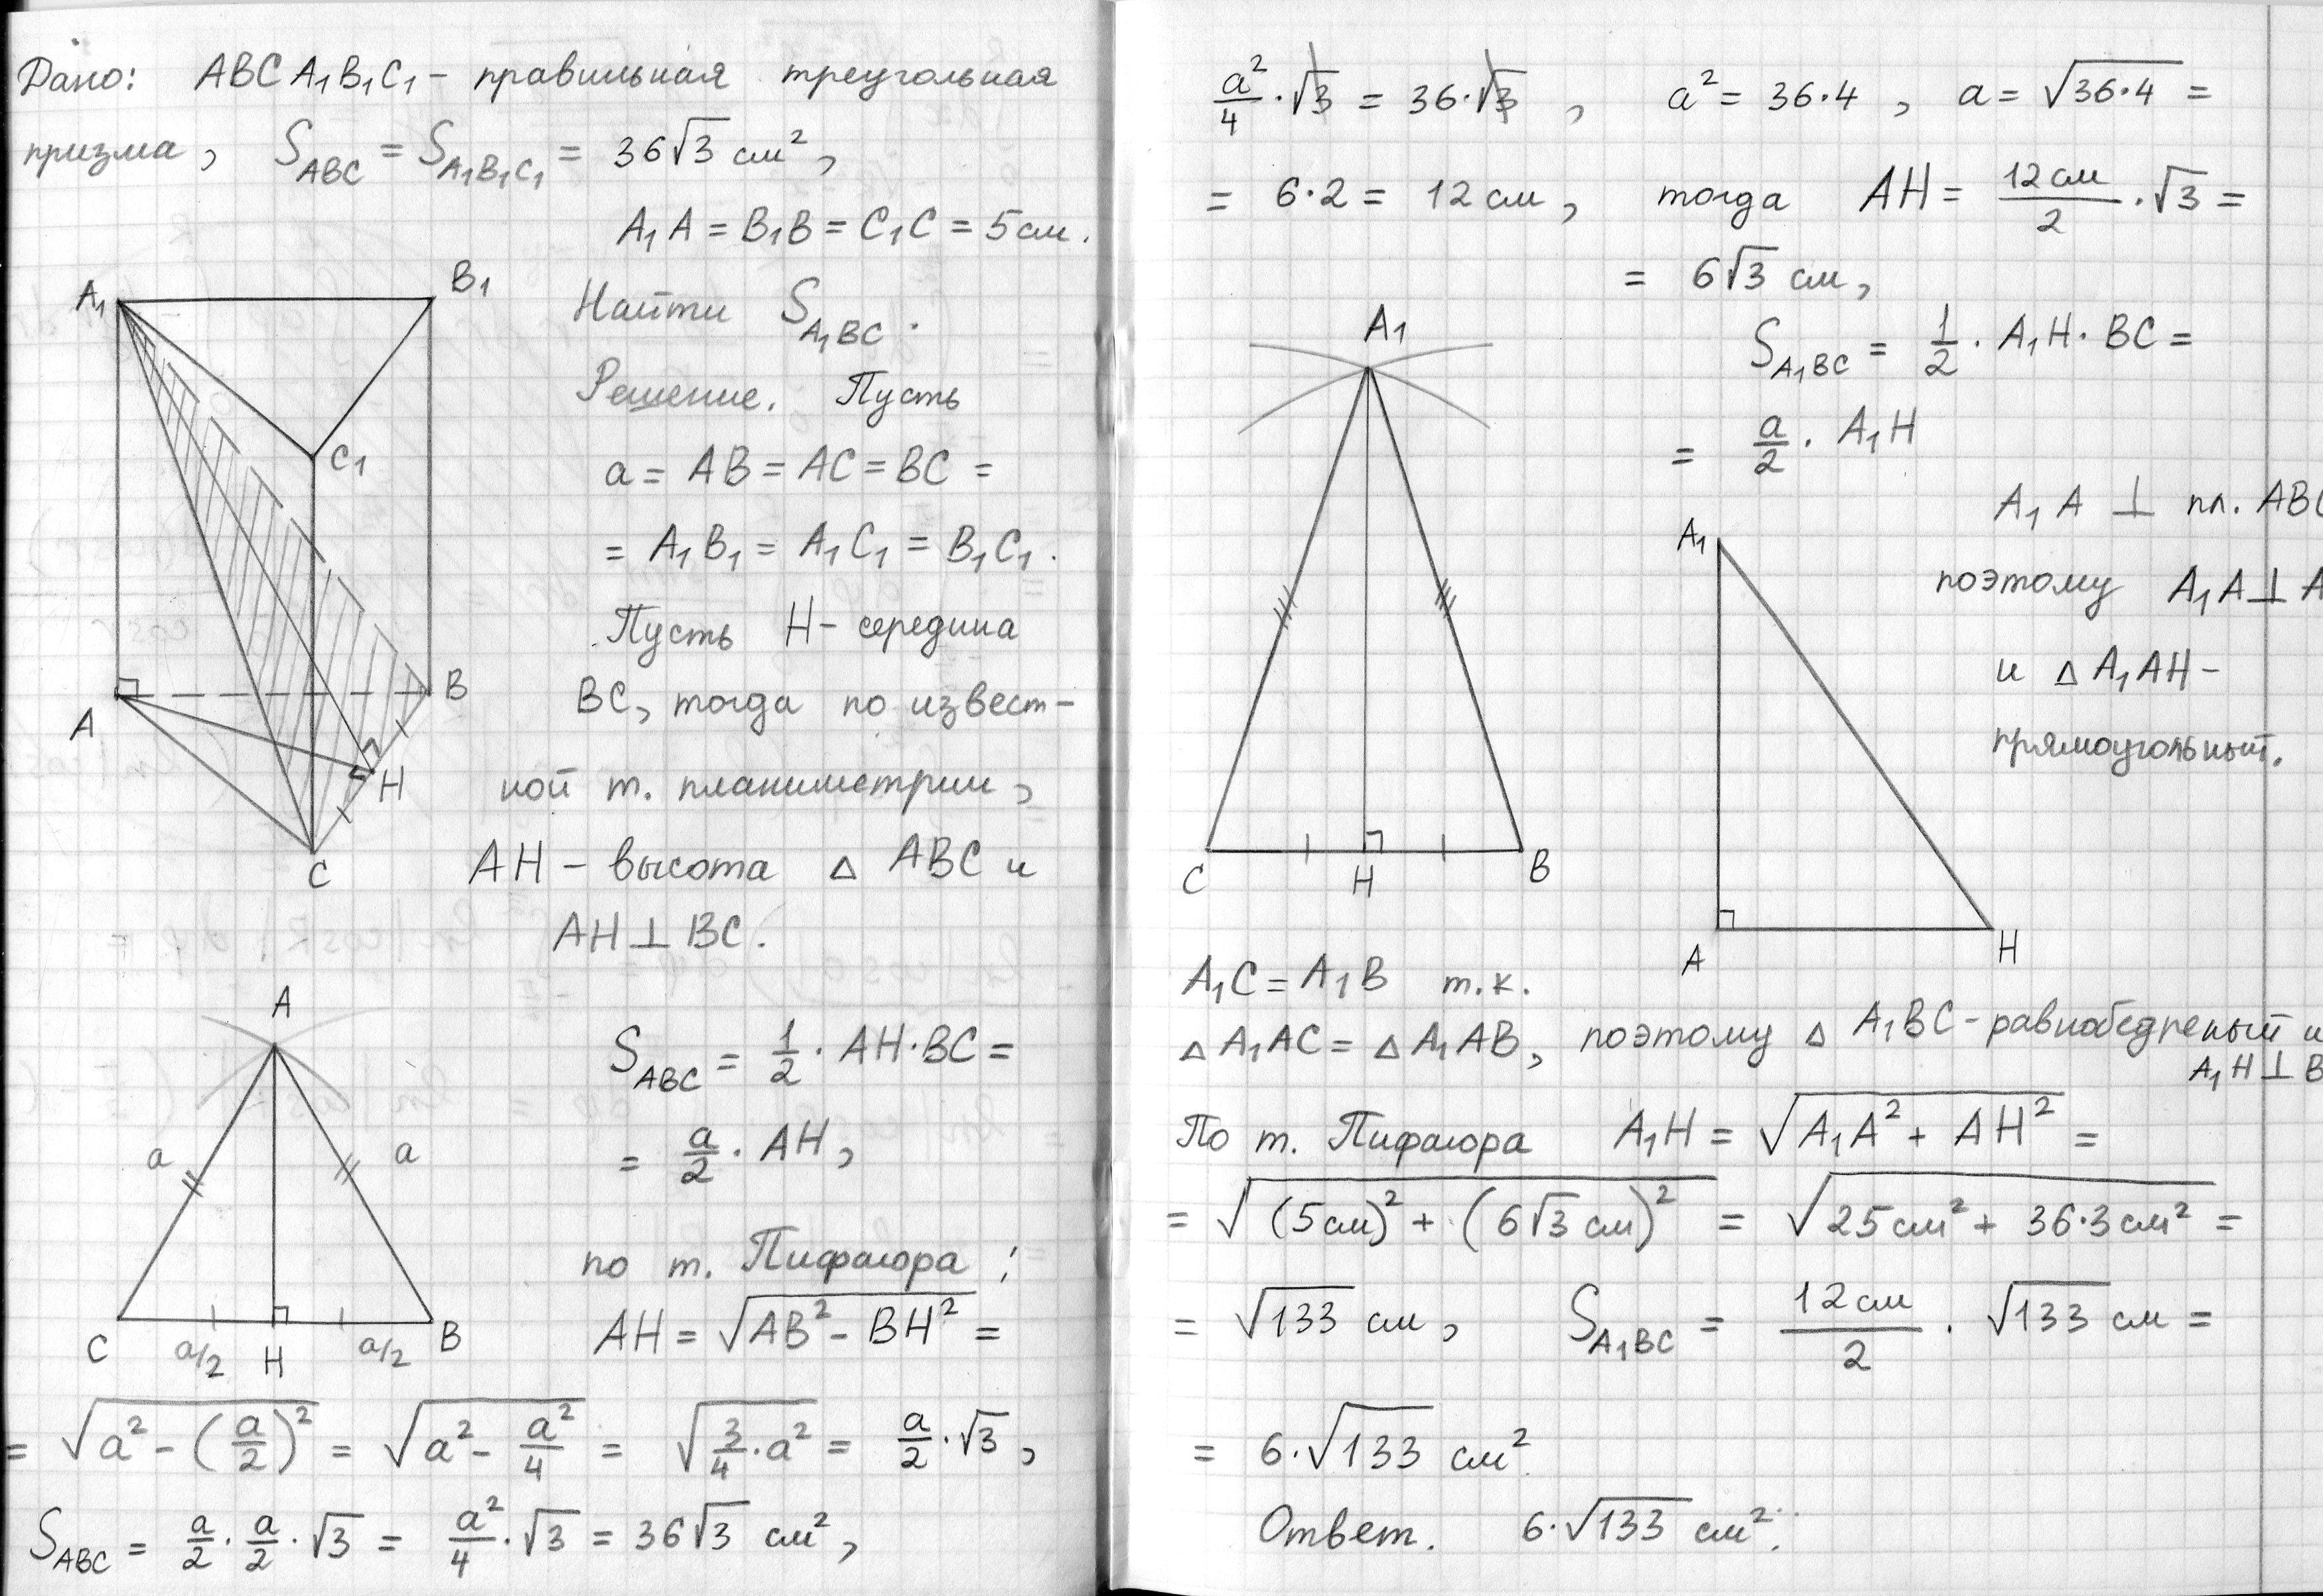 Дано: ABCA₁B₁C₁ – правильная треугольная
призма, S_ABC = S_A₁B₁C₁ = 36√3 см²,
A₁A = B₁B = C₁C = 5см.
A₁
B₁
C₁
A
B
H
C
Найти S_A₁BC.
Решение. Пусть
a = AB = AC = BC =
= A₁B₁ = A₁C₁ = B₁C₁.
Пусть H – середина
BC, тогда по извест-
ной т. планиметрии,
AH – высота △ ABC и
AH ⊥ BC.
A
a
a
C
a/2
H
a/2
B
S_ABC = 1/2 · AH · BC =
= a/2 · AH,
по т. Пифагора:
AH = √(AB² – BH²) =
= √(a² – (a/2)²) = √(a² – a²/4) = √(3/4 · a²) = a/2 · √3,
S_ABC = a/2 · a/2 · √3 = a²/4 · √3 = 36√3 см²,
a²/4 · √3 = 36 · √3, a² = 36·4, a = √(36·4) =
= 6·2 = 12см, тогда AH = 12см/2 · √3 =
= 6√3 см,
S_A₁BC = 1/2 · A₁H · BC =
= a/2 · A₁H
A₁
C
H
B
A₁
A
H
A₁A ⊥ пл. ABC
поэтому A₁A ⊥ A
и △ A₁AH –
прямоугольный.
A₁C = A₁B т.к.
△ A₁AC = △ A₁AB, поэтому △ A₁BC – равнобедреный и
A₁H ⊥ B
По т. Пифагора A₁H = √(A₁A² + AH²) =
= √((5см)² + (6√3 см)²) = √(25см² + 36·3см²) =
= √133 см, S_A₁BC = 12см/2 · √133 см =
= 6·√133 см²
Ответ. 6·√133 см².